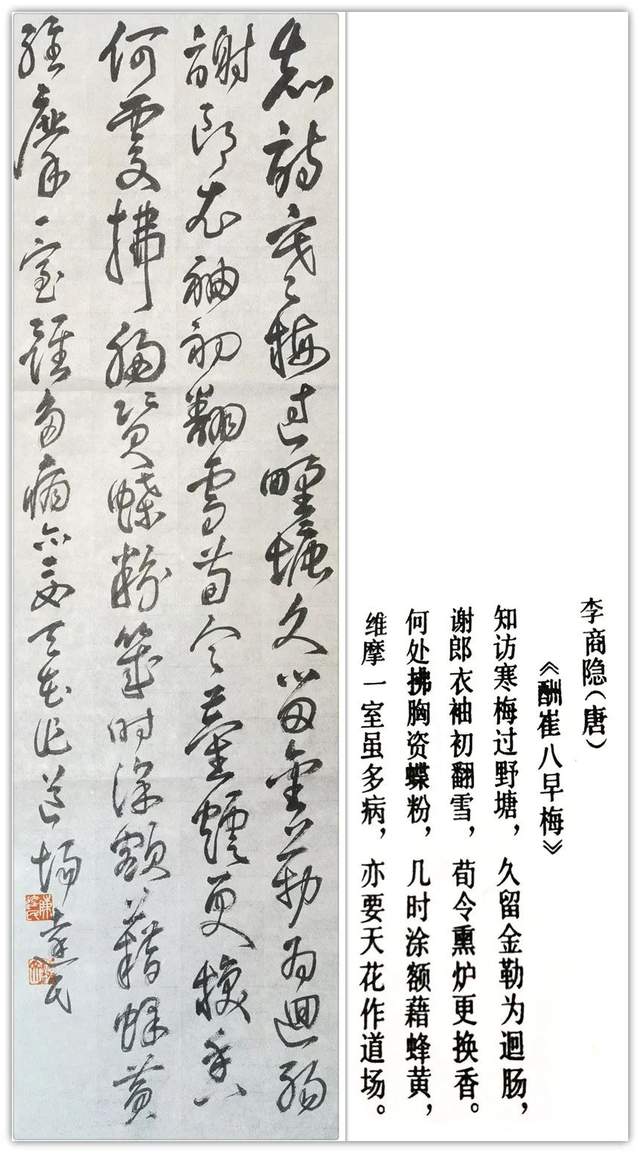 李商隐(唐)
《酬崔八早梅》
知访寒梅过野塘，久留金勒为迴肠，
谢郎衣袖初翻雪，荀令熏炉更换香。
何处拂胸资蝶粉，几时涂额藉蜂黄，
维摩一室虽多病，亦要天花作道场。
知訪寒梅過野塘久留金勒為迴腸
謝郎衣袖初翻雪荀令薰爐更換香
何處拂胸資蝶粉幾時塗額藉蜂黃
維摩一室雖多病亦要天花作道場